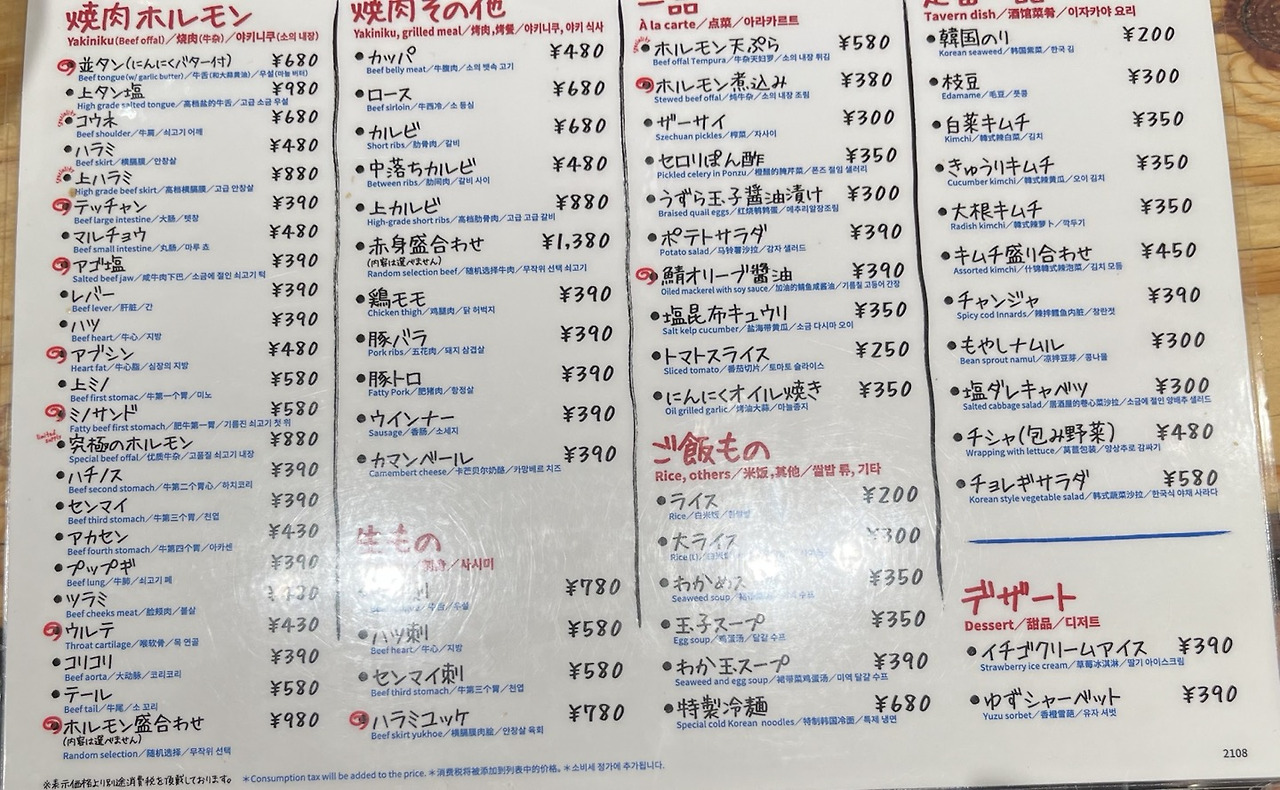 焼肉ホルモン
Yakiniku(Beef offal)／烧肉(牛杂)／야키니쿠(소의 내장)
並タン(にんにくバター付) ¥680
Beef tongue(w/garlic butter)／牛舌(和大蒜黄油)／우설(마늘 버터)
上タン塩 ¥980
High grade salted tongue／高档盐的牛舌／고급 소금 우설
コウネ ¥680
Beef shoulder／牛肩／쇠고기 어깨
ハラミ ¥480
Beef skirt／横膈膜／안창살
上ハラミ ¥880
High grade beef skirt／高档横膈膜／고급 안창살
テッチャン ¥390
Beef large intestine／大肠／텟창
マルチョウ ¥480
Beef small intestine／丸肠／마루 쵸
アゴ塩 ¥390
Salted beef jaw／咸牛肉下巴／소금에 절인 쇠고기 턱
レバー ¥390
Beef lever／肝脏／간
ハツ ¥390
Beef heart／牛心／지방
アブシン ¥480
Heart fat／牛心脂／심장의 지방
上ミノ ¥580
Beef first stomac／牛第一个胃／미노
ミノサンド ¥580
Fatty beef first stomach／肥牛第一胃／기름진 쇠고기 첫 위
究極のホルモン ¥880
Special beef offal／优质牛杂／고품질 쇠고기 내장
ハチノス ¥390
Beef second stomach／牛第二个胃心／하치코리
センマイ ¥390
Beef third stomach／牛第三个胃／천엽
アカセン ¥430
Beef fourth stomach／牛第四个胃／아카센
プップギ ¥390
Beef lung／牛肺／쇠고기 폐
ツラミ
Beef cheeks meat／脸颊肉／볼살
ウルテ ¥430
Throat cartilage／喉软骨／목 연골
コリコリ ¥390
Beef aorta／大动脉／코리코리
テール ¥580
Beef tail／牛尾／소 꼬리
ホルモン盛合わせ ¥980
(内容は選べません)
Random selection／随机选择／무작위 선택
焼肉その他
Yakiniku, grilled meal／烤肉,烤餐／야키니쿠, 야키 식사
カッパ ¥480
Beef belly meat／牛腹肉／소의 뱃속 고기
ロース ¥680
Beef sirloin／牛西冷／소 등심
カルビ ¥680
Short ribs／肋骨肉／갈비
中落ちカルビ ¥480
Between ribs／肋间肉／갈비 사이
上カルビ ¥880
High-grade short ribs／高档肋骨肉／고급 고급 갈비
赤身盛合わせ ¥1,380
(内容は選べません)
Random selection beef／随机选择牛肉／무작위 선택 쇠고기
鶏モモ ¥390
Chicken thigh／鸡腿肉／닭 허벅지
豚バラ ¥390
Pork ribs／五花肉／돼지 삼겹살
豚トロ ¥390
Fatty Pork／肥猪肉／항정살
ウインナー ¥390
Sausage／香肠／소세지
カマンベール ¥390
Camembert cheese／卡芒贝尔奶酪／카망베르 치즈
生もの
／사시미
刺 ¥780
／牛舌／우설
ハツ刺 ¥580
Beef heart／牛心／지방
センマイ刺 ¥580
Beef third stomach／牛第三个胃／천엽
ハラミユッケ ¥780
Beef skirt yukhoe／横膈膜肉脍／안창살 육회
一品
À la carte／点菜／아라카르트
ホルモン天ぷら ¥580
Beef offal Tempura／牛杂天妇罗／소의 내장 튀김
ホルモン煮込み ¥380
Stewed beef offal／炖牛杂／소의 내장 조림
ザーサイ ¥300
Szechuan pickles／榨菜／자사이
セロリぽん酢 ¥350
Pickled celery in Ponzu／橙醋的腌芹菜／폰즈 절임 샐러리
うずら玉子醤油漬け ¥300
Braised quail eggs／红烧鹌鹑蛋／메추리알장조림
ポテトサラダ ¥390
Potato salad／马铃薯沙拉／감자 샐러드
鯖オリーブ醤油 ¥390
Oiled mackerel with soy sauce／加油的鲭鱼咸酱油／기름칠 고등어 간장
塩昆布キュウリ ¥350
Salt kelp cucumber／盐海带黄瓜／소금 다시마 오이
トマトスライス ¥250
Sliced tomato／番茄切片／토마토 슬라이스
にんにくオイル焼き ¥350
Oil grilled garlic／烤油大蒜／마늘종지
ご飯もの
Rice, others／米饭,其他／쌀밥 류, 기타
ライス ¥200
Rice／白米饭／
大ライス ¥300
Rice(L)
わかめス ¥350
Seaweed soup／
玉子スープ ¥350
Egg soup／鸡蛋汤／달걀 수프
わか玉スープ ¥390
Seaweed and egg soup／裙带菜鸡蛋汤／미역 달걀 수프
特製冷麺 ¥680
Special cold Korean noodles／特制韩国冷面／특제 냉면
Tavern dish／酒馆菜肴／이자카야 요리
韓国のり ¥200
Korean seaweed／韩国紫菜／한국 김
枝豆 ¥300
Edamame／毛豆／풋콩
白菜キムチ ¥350
Kimchi／韓式辣白菜／김치
きゅうりキムチ ¥350
Cucumber kimchi／韓式辣黄瓜／오이 김치
大根キムチ ¥350
Radish kimchi／韓式辣萝卜／깍두기
キムチ盛り合わせ ¥450
Assorted kimchi／什锦韓式辣泡菜／김치 모듬
チャンジャ ¥390
Spicy cod Innards／辣拌鳕鱼内脏／창란젓
もやしナムル ¥300
Bean sprout namul／凉拌豆芽／콩나물
塩ダレキャベツ ¥300
Salted cabbage salad／居酒屋的卷心菜沙拉／소금에 절인 양배추 샐러드
チシャ(包み野菜) ¥480
Wrapping with lettuce／莴苣包装／양상추로 감싸기
チョレギサラダ ¥580
Korean style vegetable salad／韩式蔬菜沙拉／한국식 야채 사라다
デザート
Dessert／甜品／디저트
イチゴクリームアイス ¥390
Strawberry ice cream／草莓冰淇淋／딸기 아이스크림
ゆずシャーベット ¥390
Yuzu sorbet／香橙雪葩／유자 셔벗
2108
※表示価格より別途消費税を頂戴しております。 ＊Consumption tax will be added to the price. ＊消费税将被添加到列表中的价格。＊소비세 정가에 추가됩니다.